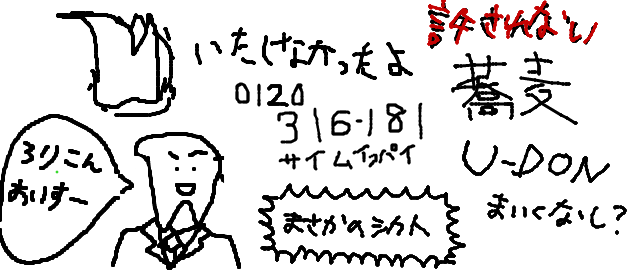 いたしなかったよ
0120
316-181
サイムイッパイ
許されない
蕎麦
U-DON
まいくないし?
ろりこん
おいすー
まさかのシカト